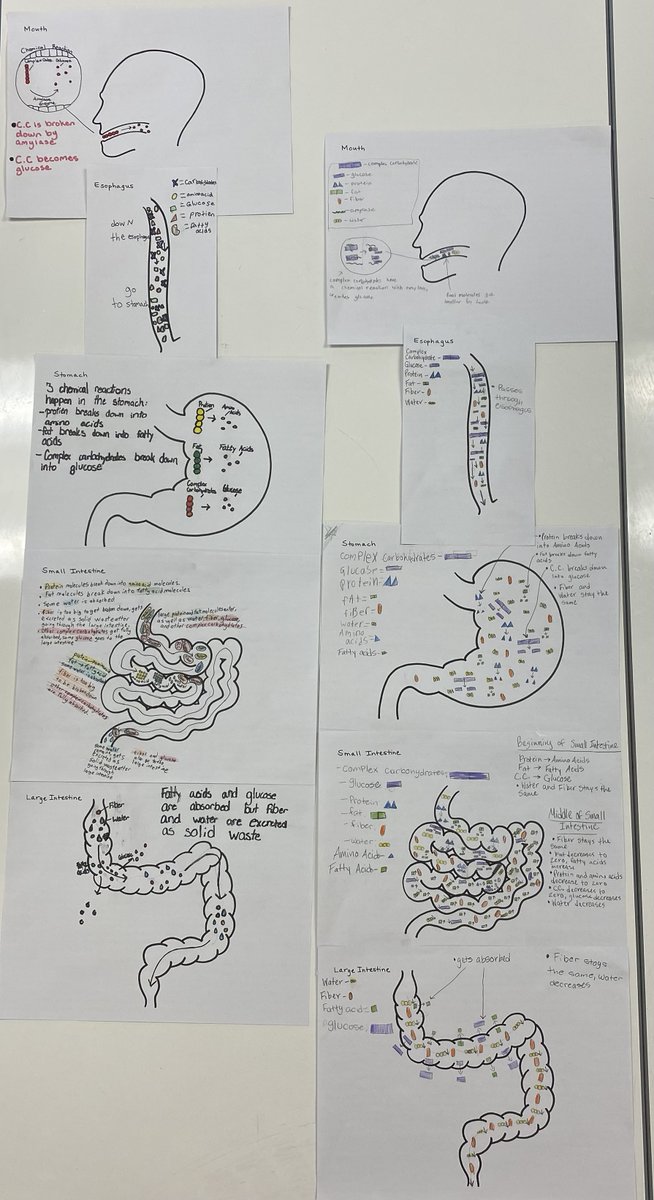 Mouth
Chemical Reaction
Complex Carbs Glucose
Amylase
enzyme
• C.C is broken
down by
amylase
• C.C becomes
glucose
Esophagus
= Carbohydrates
= amino acid
= Glucose
= protien
= fatty
acids
down
the esophagus
go
to stomach
Stomach
3 chemical reactions
happen in the stomach:
- protien breaks down into
amino acids
- fat breaks down into fatty
acids
- Complex carbohydrates break down
into glucose
Protien → Amino
Acids
Fat → Fatty Acids
Complex
Carbohydrates → Glucose
Small Intestine
• Protein molecules break down into amino acid molecules.
• Fat molecules break down into fatty acid molecules
• Some water is absorbed
• fiber is too big to get broken down, gets
excreted as solid waste after
going though the large intestine.
absorbed, some glucose goes to the
large intestine
large protein and fat molecules enter,
as well as water, fiber, glucose,
and other complex carbohydrates.
fiber is too big
to be broken down
fiber and glucose
large intestine
Large Intestine
Fiber
Water
Glucose
Fatty acids and glucose
are absorbed but fiber
and water are excreted
as solid waste
Mouth
- complex carbohydrate
- glucose
- protein
- fat
- fiber
- amylase
- water
complex carbohydrates have
a chemical reaction with amylase,
makes glucose
food molecules get
smaller by teeth
Esophagus
Complex
Carbohydrate -
Glucose -
Protein -
Fat -
Fiber -
Water -
- Passes
through
Esophagus
Stomach
Complex Carbohydrates -
Glucose -
Protein -
Fat -
Fiber -
water -
Amino
acids -
Fatty acids -
• Protein breaks down
into Amino Acids
• Fat breaks down fatty
acids
• C.C. breaks down
into glucose
• Fiber and
Water stay the
same
Small Intestine
- Complex Carbohydrates -
- glucose -
- Protein -
- fat -
- fiber -
- water -
Amino Acid -
Fatty Acid -
Beginning of Small Intestine
Protein → Amino Acids
Fat → Fatty Acids
C.C. → Glucose
• Water and Fiber Stays the
Same
Middle of Small
Intestine
• Fiber stays the
same
• Fat decreases to
zero, fatty acids
increase
• Protein and amino acids
decrease to zero
• C.C. decreases to
zero, glucose decreases
• Water decreases
Large Intestine
Water -
Fiber -
Fatty acid =
glucose
• gets absorbed
• Fiber stays
the same, water
decreases